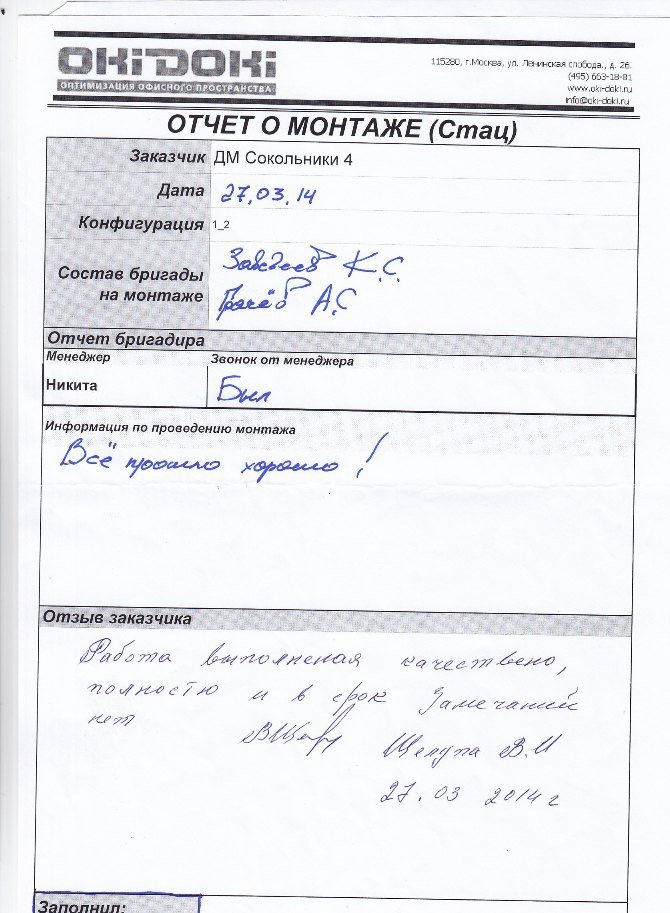 OKIDOKI
ОПТИМИЗАЦИЯ ОФИСНОГО ПРОСТРАНСТВА
115280, г.Москва, ул. Ленинская слобода., д. 26.
(495) 663-18-81
www.oki-doki.ru
info@oki-doki.ru
ОТЧЕТ О МОНТАЖЕ (Стац)
Заказчик ДМ Сокольники 4
Дата 27.03.14
Конфигурация 1_2
Состав бригады на монтаже
К.С.
А.С
Отчет бригадира
Менеджер Звонок от менеджера
Никита Был
Информация по проведению монтажа
Всё прошло хорошо!
Отзыв заказчика
Работа выполненая качествено,
полностю и в срок Замечаний
нет
В.И
27.03 2014 г
Заполнил: